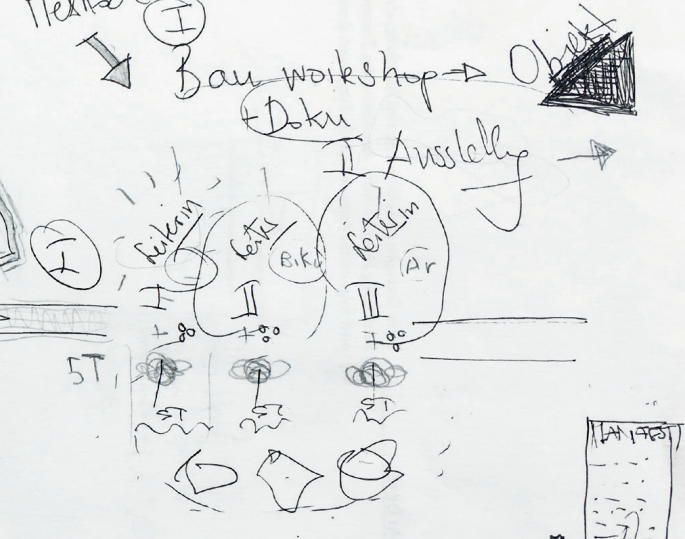 I
Bau workshop → Objekt
+ Doku
II Ausstellg →
I
Leiterin Leiter Leiterin
Biku Ar
I II III
+ + +
5T,
5T 5T 5T
MANIFEST